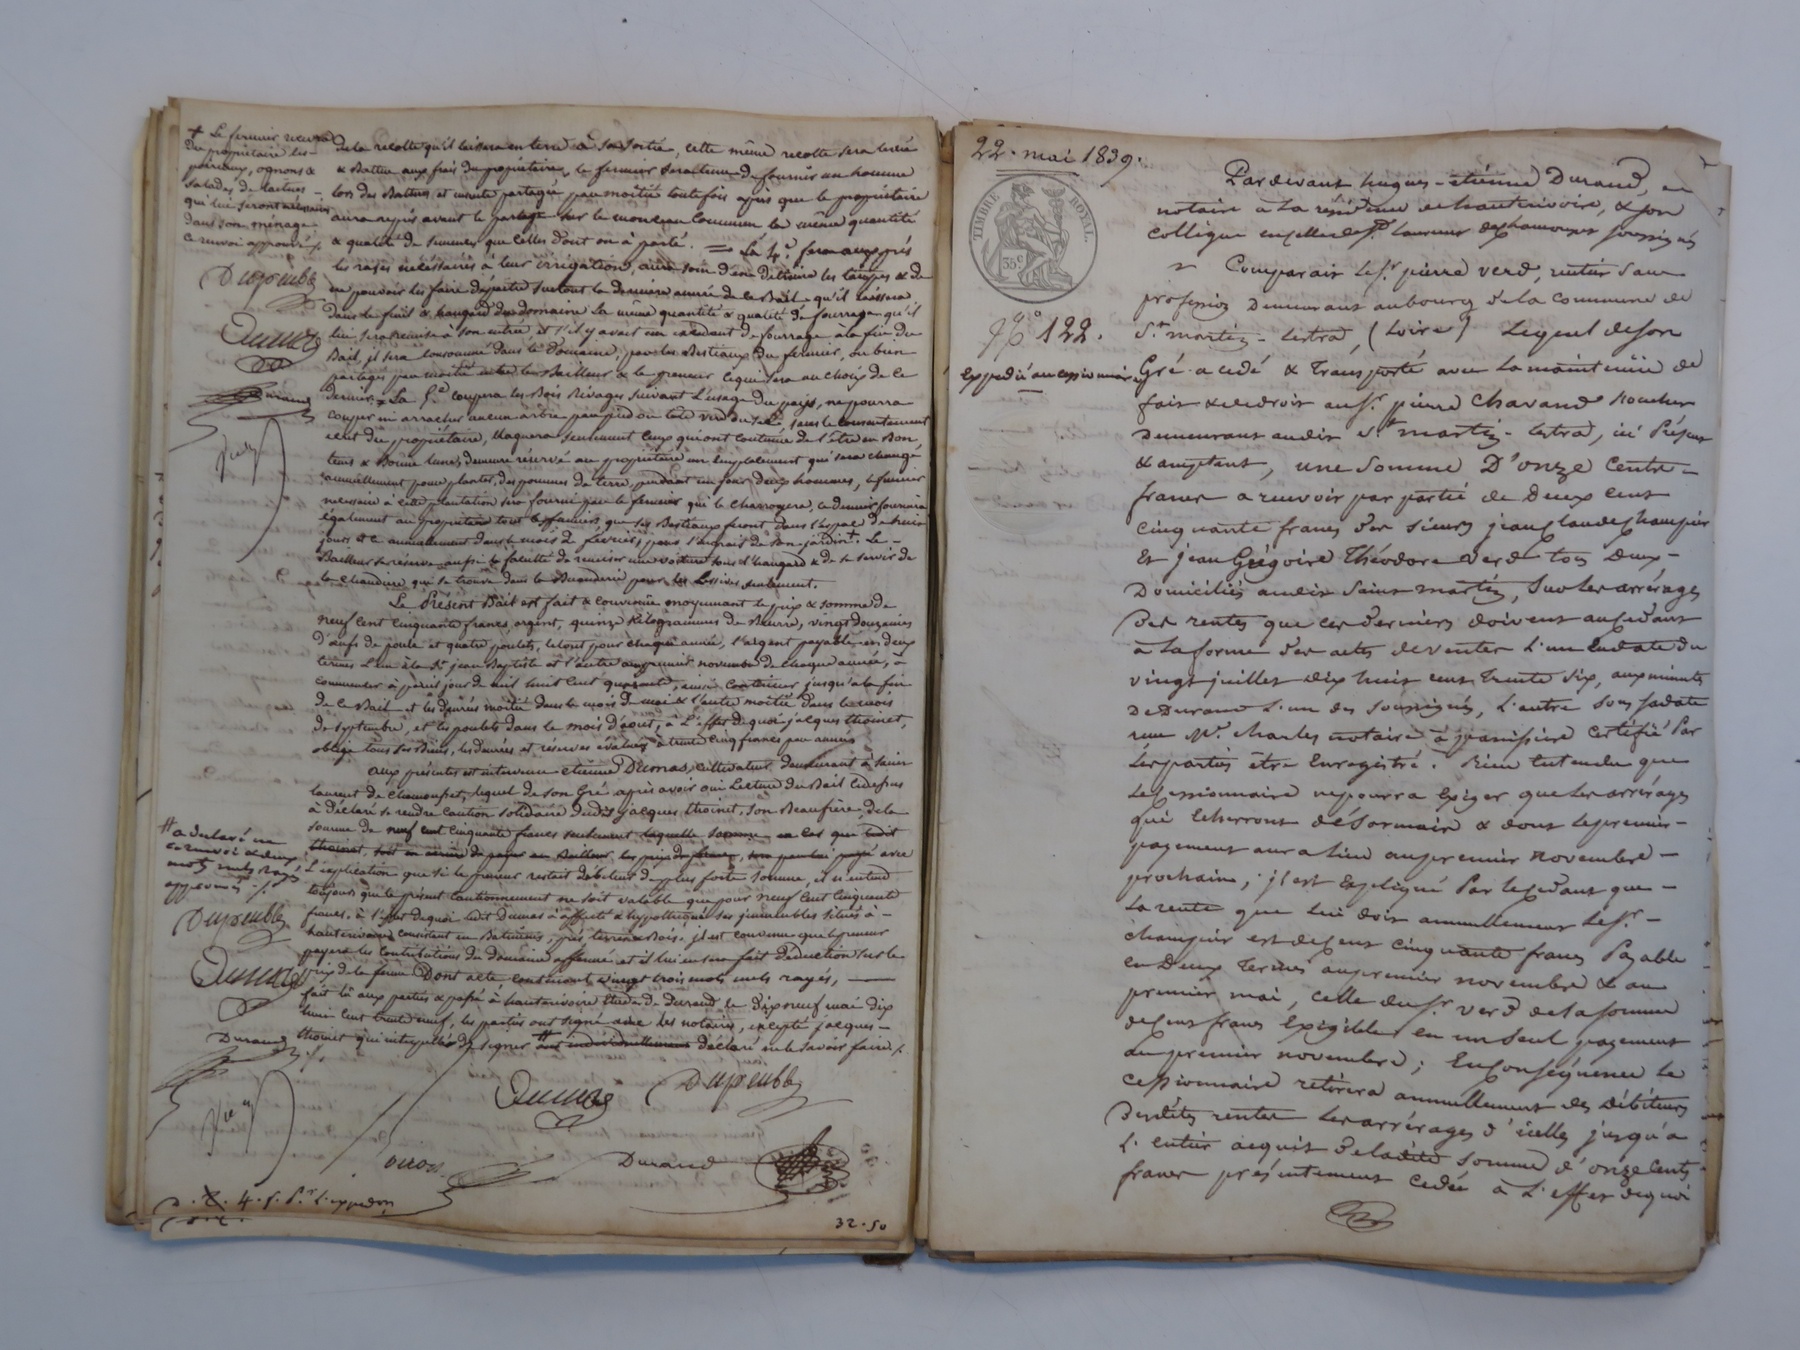 + Le fermier recevra
du propriétaire les
poireaux, ognons &
salades de laitues
qui lui seront nécessaires
dans son ménage
ce renvoi approuvé /.
de la récolte qu'il laissera en terre à sa sortie, cette même récolte sera levée
& Battue aux frais du propriétaire, le fermier sera tenu de fournir un homme
lors des Battures et ensuite partagée par moitié toutefois après que le propriétaire
aura repris avant le partage sur le monceau commun la même quantité
& qualité de semences que celles dont on a parlé. = La 4e. fera aux prés
les rases nécessaires à leur irrigation, aura soin d'en détruire les taupes & de
ne pouvoir les faire dépaitre surtout la dernière année de ce Bail qu'il laissera
dans le fenil & hangard du domaine la même quantité & qualité de fourrage qu'il
lui sera remise à son entrée et s'il y avait un excédant de fourrage à la fin du
Bail, il sera consommé dans le domaine, par les Bestiaux du fermier, ou bien
partagés par moitié entre le Bailleur & le preneur ce qui sera au choix de ce
dernier. La 5e. coupera les Bois Rivages suivant l'usage du pays, ne pourra
couper ni arracher aucun arbre par pied ou tête verd ou sec, sans le consentement
écrit du propriétaire, élaguera seulement ceux qui ont coutume de l'être en Bon
tems & Bonne lune, demeure réservé au propriétaire un emplacement qui sera changé
annuellement pour planter, des pommes de terre, pendant un jour deux hommes, le fumier
nécessaire à cette plantation sera fourni par le fermier qui le charroyera, ce dernier fournira
également au propriétaire tout le fumier, que ses Bestiaux feront dans l'espace de huit
jours et ce annuellement dans le mois de février, pour l'engrais de son jardin. Le
Bailleur se réserve aussi la faculté de remiser une voiture sous l'hangard & de se servir de
la chaudière, qui se trouve dans la Buanderie pour les lessives seulement.
Le Présent Bail est fait & convenue moyennant le prix & somme de
neuf cent cinquante francs, argent, quinze kilogrammes de Beurre, vingt douzaines
d'œufs de poule et quatre poulets, le tout pour chaque année, l'argent payable en deux
termes l'un à la St. jean Baptiste et l'autre au premier novembre de chaque année, à
commencer à pareil jour de mil huit cent quarante, ainsi continuer jusqu'à la fin
de ce Bail et les denrées moitié dans le mois de mai & l'autre moitié dans le mois
de septembre, et les poulets dans le mois d'aout, à l'effet de quoi jacques thoinet,
oblige tous ses Biens, les denrées et réserves évalués à trente cinq francs par année
aux présentes est intervenu etienne Dumas, cultivateur demeurant à saint
laurent de chamousset, lequel de son Gré après avoir oui lecture du Bail cidessus
à déclaré se rendre caution solidaire dudit jacques thoinet, son Beaufrère, de la
somme de neuf cent cinquante francs seulement laquelle somme en cas que ledit
avec
l'explication que si le preneur restait débiteur de plus forte somme, il s'entend
toujours que le présent cautionnement ne soit valable que pour neuf cent cinquante
francs, à l'effet de quoi ledit Dumas à affecté & hypothéqué ses immeubles situés à
hauterivoire consistant en Batiments, prés terres & Bois. il est convenu que le preneur
payera les contributions du domaine affermé et il lui en sera fait déduction sur le
prix de la ferme Dont acte, contenant vingt trois mots nuls rayés,
fait lû aux parties & passé à hauterivoire Etude de Durand le dix neuf mai dix
huit cent trente neuf, les parties ont signé avec les notaires, excepté jacques
thoinet qui interpellé de signer # ont individuellement déclaré ne le savoir faire /.
# a déclaré ne
ce renvoi & deux
mots nuls rayés
approuvés /.
Dumas
Durand
Dumas
Durand
Durand
4. f. Pr. l'expedon
32.50
22. mai 1839.
TIMBRE ROYAL.
35c
No 122.
Expédié au cessionnaire
Pardevant hugues-étienne Durand,
notaire à la résidence de hauterivoire, & son
collègue en celle de St. laurent de chamousset soussignés
Comparait le sr. pierre verd, rentier sans
profession demeurant au bourg de la commune de
St. martin-lestra, (Loire) Lequel de son
Gré a cédé & transporté avec la maintenüe de
fait & de droit au sr. pierre Chavand Boucher
demeurant audit St. martin-lestra, ici Présent
& acceptant, une somme D'onze cents
francs a recevoir par partie de deux cent
cinquante francs des sieurs jean claude champier
Et jean Grégoire Théodore verd tous deux
Domiciliés audit Saint martin, sur les arrérages
Des rentes que ces derniers doivent au cédant
à la forme des actes de ventes l'un En date du
vingt juillet dix huit cent trente six, aux minutes
De Durand l'un des soussignés, l'autre sous sa date
reçue Me. charles notaire à panissière certifié Par
les parties être Enregistré. Bien entendu que
le cessionnaire ne pourra Exiger que les arrérages
qui Echerront désormais & dont le premier
payement aura lieu au premier novembre
prochain; il est Expliqué Par le cédant que
la rente que lui doit annuellement le sr.
champier est de cent cinquante francs Payable
en deux termes au premier novembre & au
premier mai, celle du sr. verd de la somme
de cent francs Exigible en un seul payement
au premier novembre; En conséquence le
cessionnaire retirera annuellement des débiteurs
desdites rentes les arrérages d'icelles jusqu'à
l'entier acquit de ladite somme d'onze cents
francs présentement cédée à l'effet de quoi